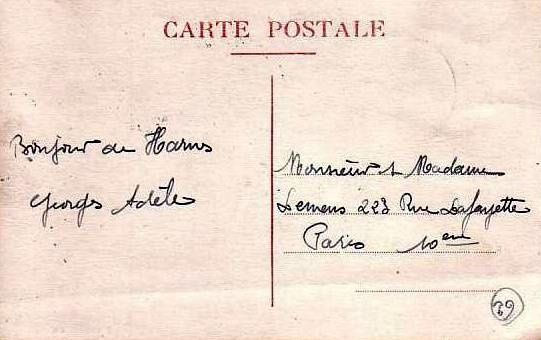 CARTE POSTALE
Bonjour de Harns
Georges Adèle
Monsieur & Madame
Lemens 223 Rue Lafayette
Paris 10eme
39